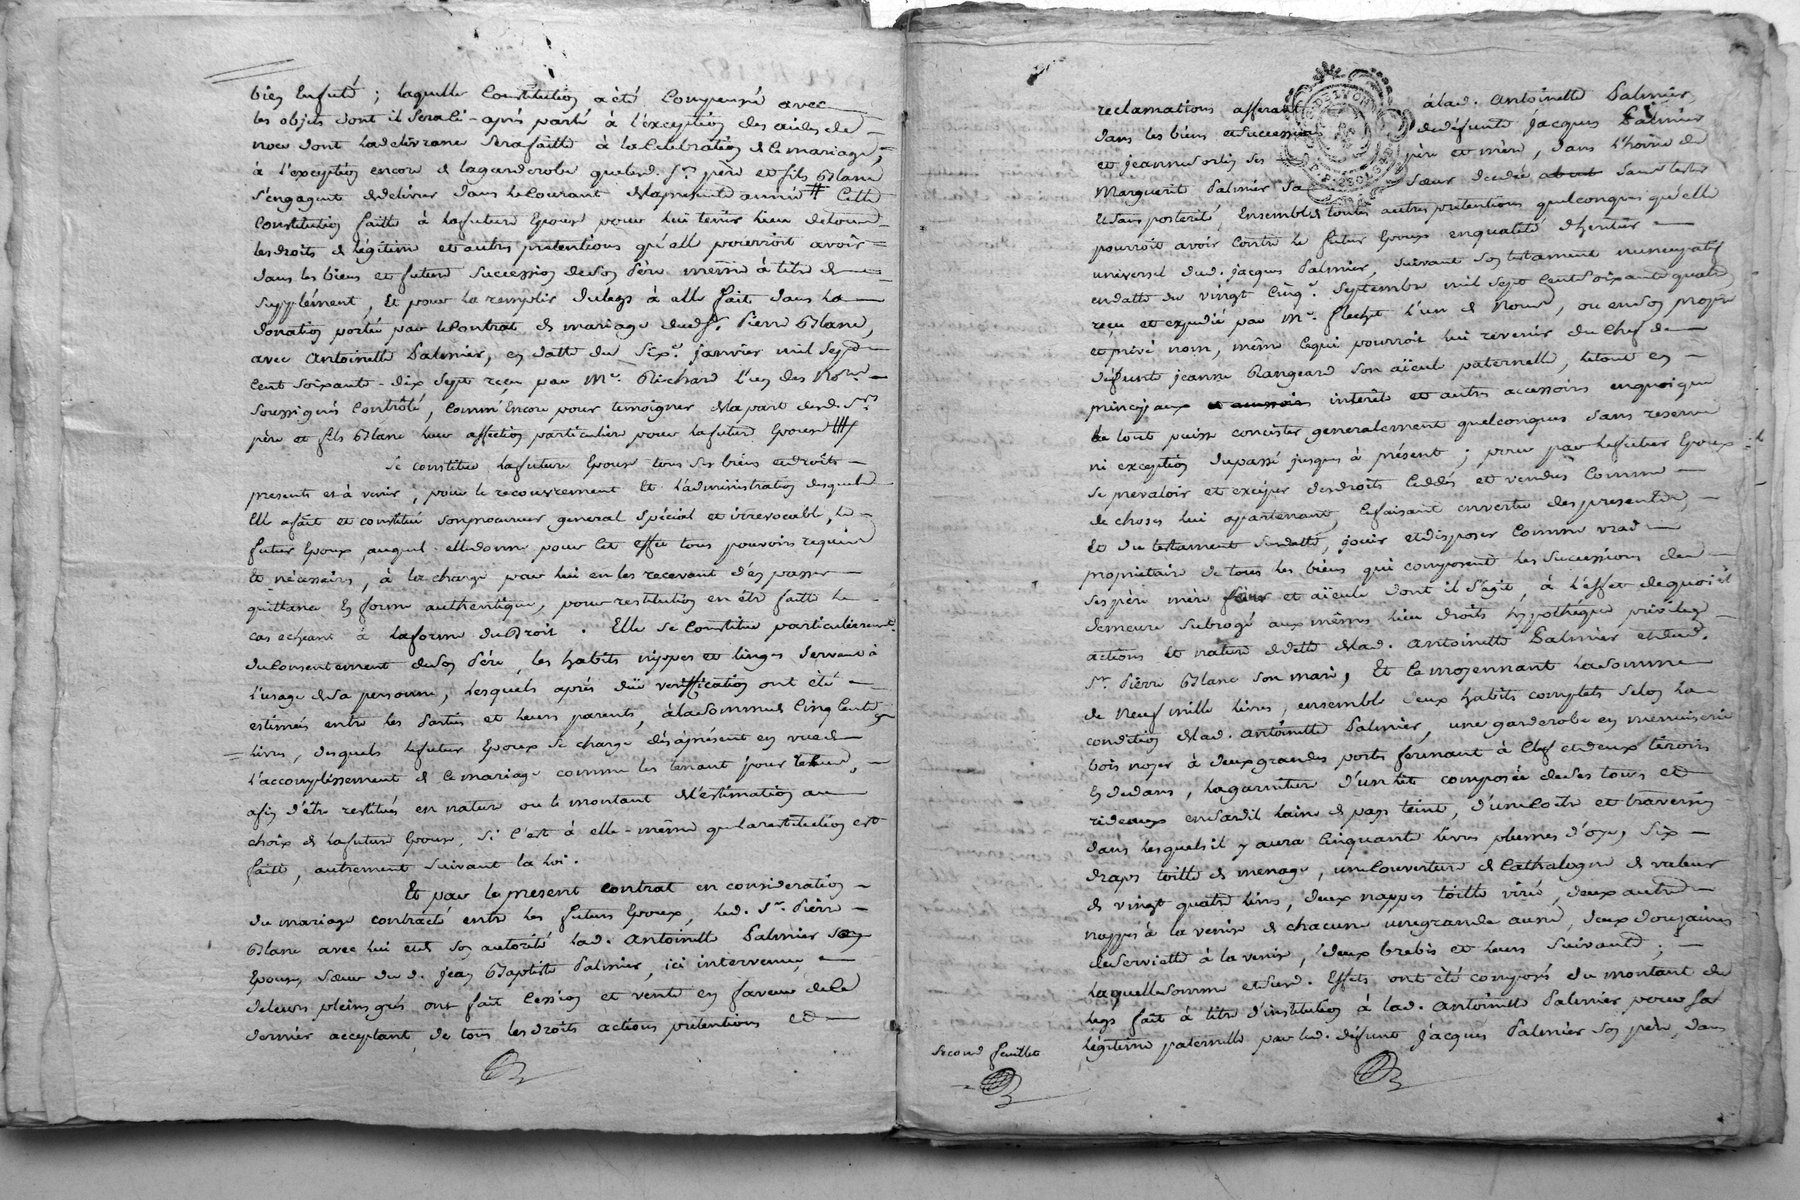 bien enfuté ; laquelle Constitution a été Compensée avec
les objets dont il sera ci-après parlé à l'exception des aides de
noce dont la délivrance sera faitte à la Celebration de ce mariage,
à l'exception encore de la garderobe que led. Srs. père et fils Blanc
s'engagent de délivrer dans le Courant de la presente année # Cette
Constitution faitte à la future Epouse pour lui tenir lieu de tous
les droits de légitime et autres prétentions qu'elle pourroit avoir
dans les biens et future succession de son Père même à titre de
supplément, Et pour la remplir du legs à elle fait dans la
donation portée par le Contrat de mariage dud. Sr. Pierre Blanc,
avec Antoinette Palmier, en datte du Sixe. janvier mil sept
cent soixante-dix sept reçu par Me. Richard l'un des Nores.
soussignés Contrôlé, Comm'Encore pour temoigner de la part desd. Srs.
père et fils Blanc leur affection particuliere pour la future Epouse
Se constitue la future Epouse tous ses biens et droits
presents et à venir, pour le recouvrement Et l'administration desquels
Elle a fait et constitué son procureur general spécial et irrevocable, le
futur Epoux, auquel elle donne pour Cet effet tous pouvoirs requis
Et nécessaires, à la charge par lui en les recevant d'en passer
quittance En forme authentique, pour restitution en être faitte le
cas echeant à la forme du Droit. Elle se Constitue particulierement
du Consentement de son Père, les habits nippes et linges servant à
l'usage de sa personne, lesquels après düe veriffication ont été
estimés entre les Parties et leurs parents, à la somme de Cinq Cents
livres, desquels le futur Epoux se charge dès à présent en vue de
l'accomplissement de ce mariage comme les tenant pour reçus,
afin d'être restitués en nature ou le montant de l'estimation au
choix de la future Epouse, si C'est à elle-même que la restitution est
faitte, autrement suivant la Loi.
Et par le present contrat en consideration
du mariage contracté entre les futurs Epoux, led. Sr. Pierre
Blanc avec lui et de son autorité lad. Antoinette Palmier son
Epouse, sœur dud. Jean Baptiste Palmier, ici intervenue,
de leurs pleins grés ont fait Cession et vente en faveur de Ce
dernier acceptant, de tous les droits actions prétentions et
reclamations afferant à lad. Antoinette Palmier
dans les biens et succession de défunts Jacques Palmier
et jeanne ses père et mère, dans l'hoirie de
Marguerite Palmier sa sœur decedée sans tester
et sans posterité, Ensemble de toutes autres prétentions quelconques qu'elle
pourroit avoir Contre le futur Epoux en qualité d'héritier
universel dud. jacques Palmier, suivant son testament nuncupatif
en datte du vingt Cinqe. Septembre mil sept Cent soixante quatre
reçu et expedié par Me. flechet l'un de Nous, ou en son propre
et privé nom, même Ce qui pourroit lui revenir du Chef de
défunte jeanne Rangeard son aïeule paternelle, le tout en
principaux intérêts et autres accessoires en quoique
le tout puisse concister generalement quelconques sans reserve
ni exception du passé jusques à présent ; pour par le futur Epoux
se prevaloir et exciper des droits Cedés et vendus Comme
de choses lui appartenant, Ce faisant en vertu des presentes,
Et du testament susdatté, jouir et disposer Comme vrai
propriétaire de tous les biens qui composent les Successions de
ses père mère et aïeule dont il s'agit, à l'effet de quoi il
demeure subrogé aux mêmes lieu droits hypothéque privileges
actions Et nature de dette de lad. Antoinette Palmier et dud.
Sr. Pierre Blanc son mari, Et Ce moyennant la somme
de Neuf mille livres, ensemble deux habits complets selon la
condition de lad. Antoinette Palmier, une garderobe en menuiserie
bois noyer à deux grandes portes fermant à Clef et deux tiroirs
En dedans, la garniture d'un lit composée de ses tours et
rideaux en Cardil laine de pays teint, d'une Coëtre et traversin
dans lesquels il y aura Cinquante livres plumes d'oye, Six
draps toille de menage, une Couverture de Cathalogne de valeur
de vingt quatre livres, deux nappes toille virée, deux autres
nappes à la venise de chacune une grande aune, deux douzaines
de serviette à la venise, deux brebis et leurs suivants ;
laquelle somme et susd. Effets ont été composés du montant du
legs fait à titre d'institution à lad. Antoinette Palmier pour sa
légitime paternelle par led. défunt Jacques Palmier son père, dans
Second feuillet